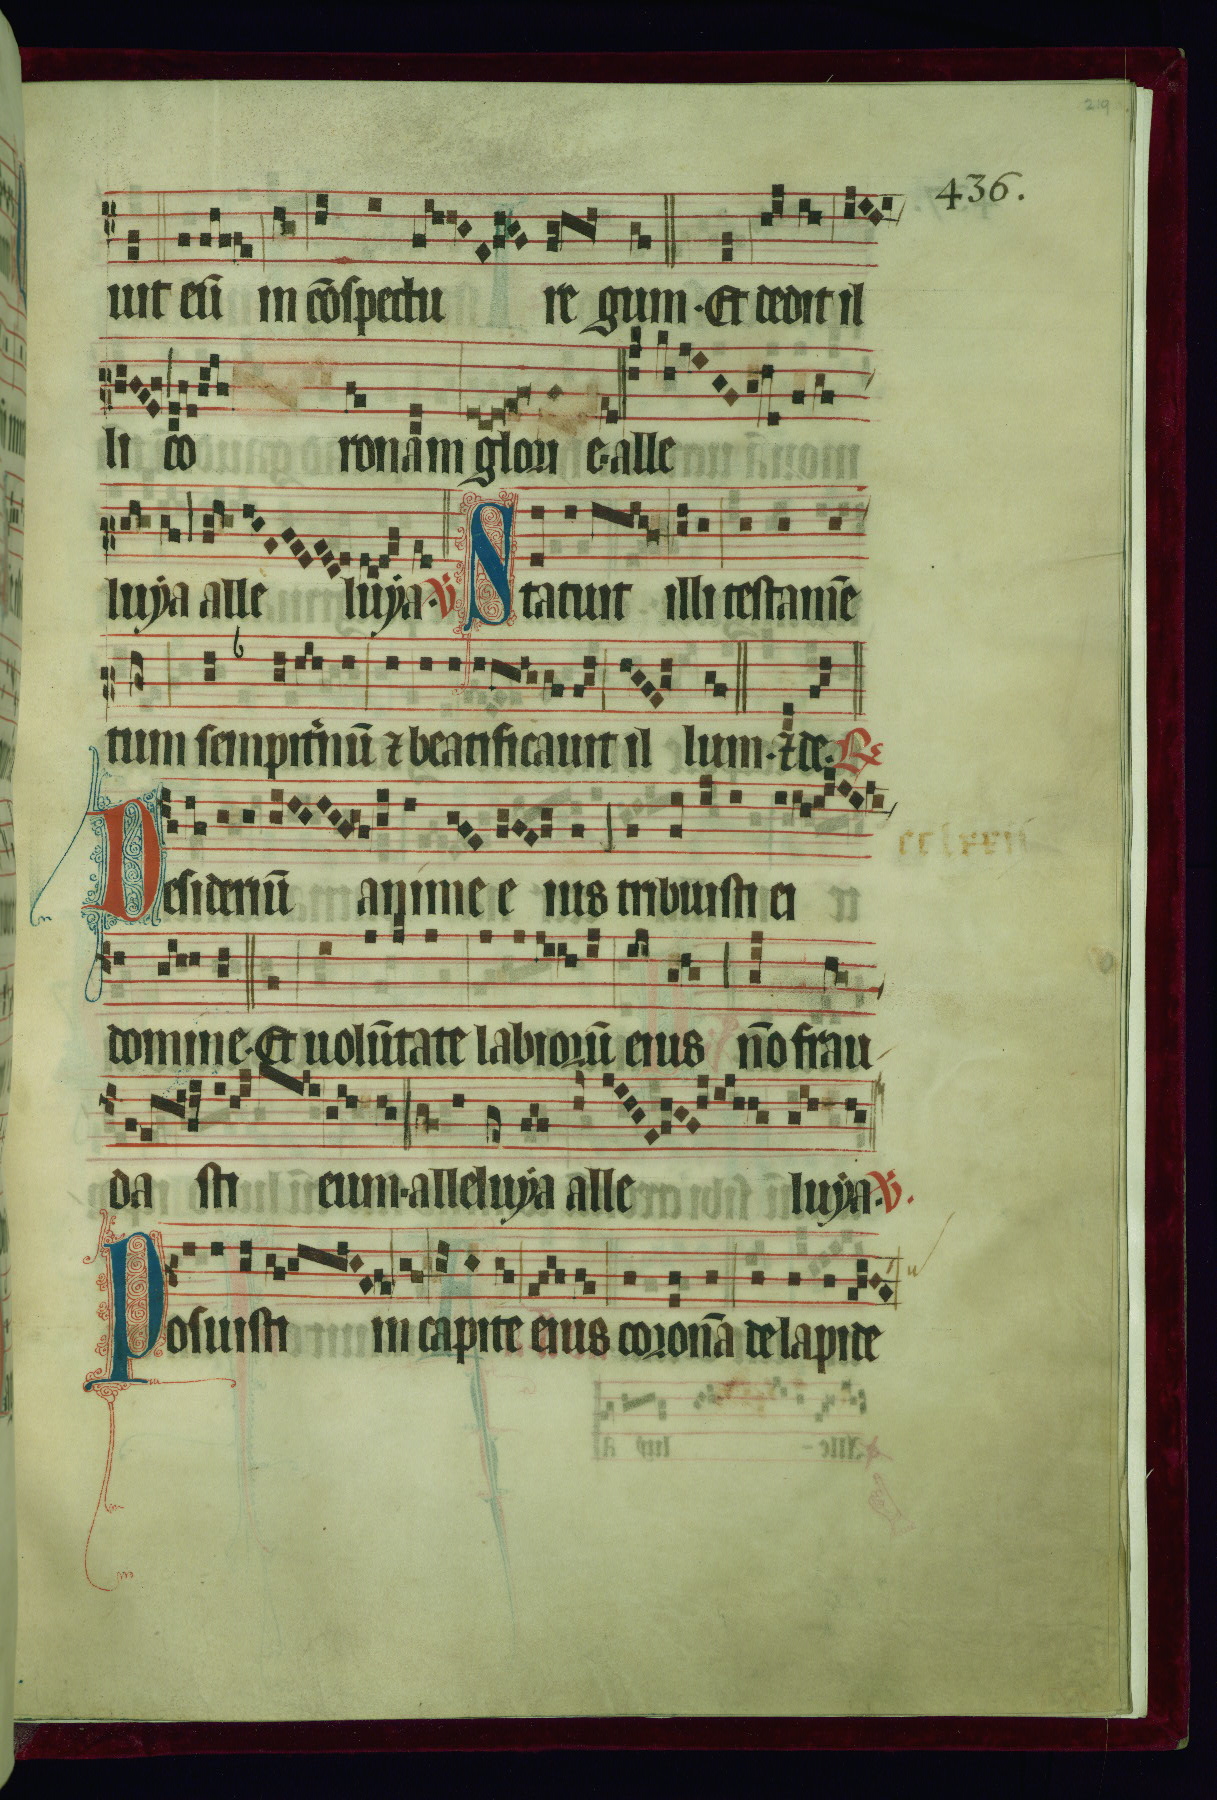 219
436.
uit eū in cōspectu re gum · Et dedit il
li co ronam glori e · alle
luẏa alle luẏa · V̄ Statuit illi testam̄e
tum sempit̉nū ⁊ beatificauit il lum · ⁊ de · R̄
Desideriū anime e ius tribuisti ei
cclxxii
domine · Et uolūtate labiorū eius nō frau
da sti eum · alleluẏa alle luẏa · V̄.
Posuisti in capite eius coronā de lapide